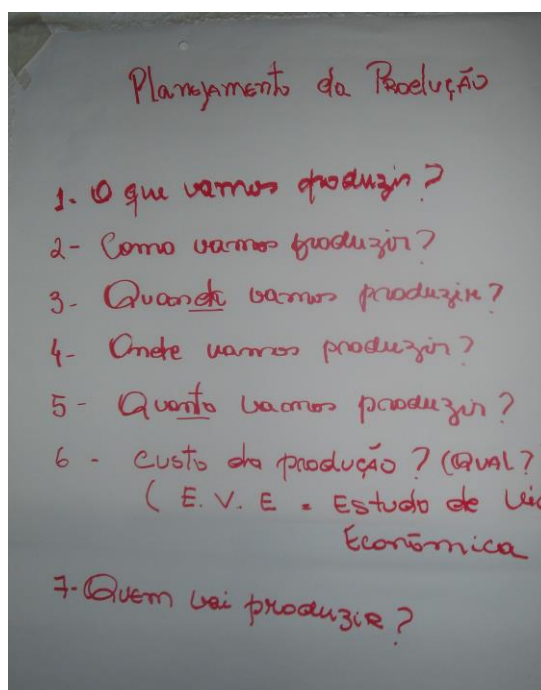 Planejamento da Produção
1. O que vamos produzir?
2- Como vamos produzir?
3- Quando vamos produzir?
4- Onde vamos produzir?
5- Quanto vamos produzir?
6- Custo da produção? (QUAL?
( E. V. E = Estudo de
Econômica
7- Quem vai produzir?